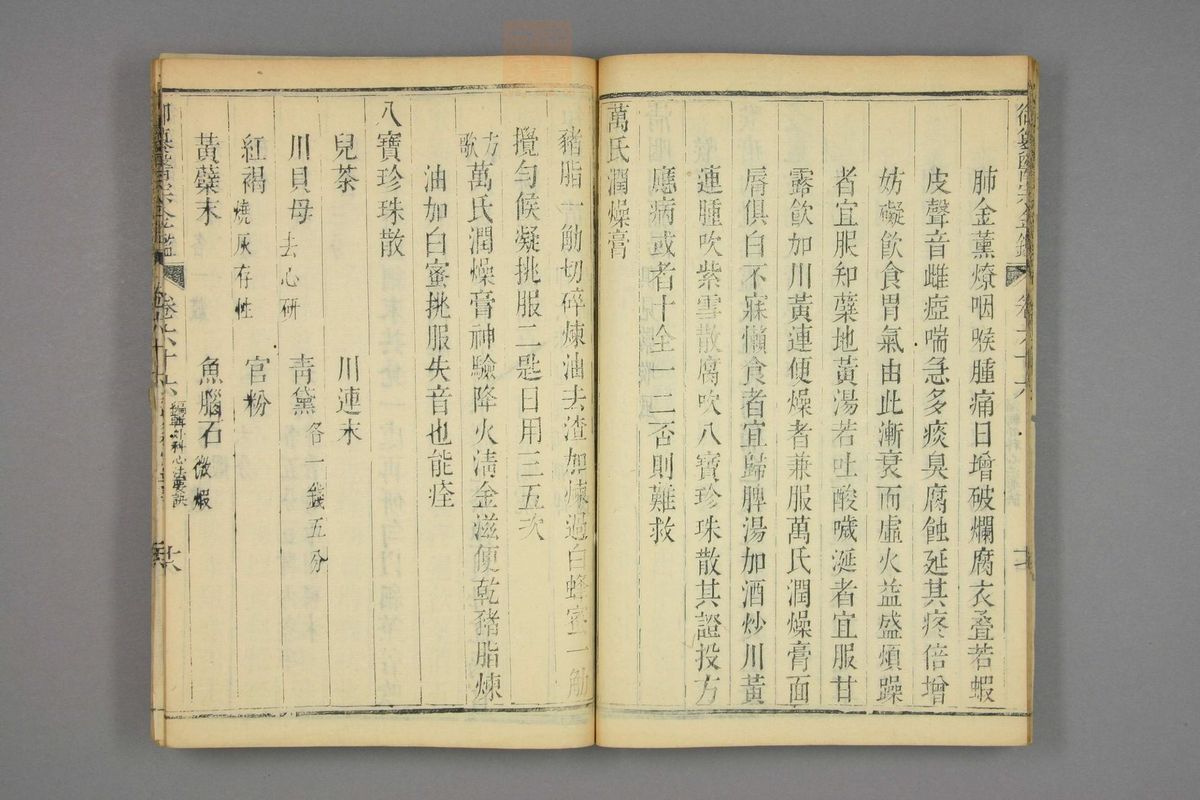 肺金薰燎咽喉腫痛日增破爛腐衣疊若蝦
皮聲音雌瘂喘急多痰臭腐蝕延其疼倍增
妨礙飲食胃氣由此漸衰而虛火益盛煩躁
者宜服知蘗地黃湯若吐酸噦涎者宜服甘
露飲加川黃連便燥者兼服萬氏潤燥膏面
唇俱白不寐懶食者宜歸脾湯加酒炒川黃
連腫吹紫雪散腐吹八寶珍珠散其證投方
應病或者十全一二否則難救
萬氏潤燥膏
豬脂一觔切碎煉油去渣加煉過白蜂蜜一觔
攪勻候凝挑服二匙日用三五次
方歌 萬氏潤燥膏神驗降火清金滋便乾豬脂煉
油加白蜜挑服失音也能痊
八寶珍珠散
兒茶 川連末
川貝母去心研 青黛各一錢五分
紅褐燒灰存性 官粉
黃蘗末 魚腦石微煅
御纂醫宗金鑑 卷六十六 編輯外科心法要訣